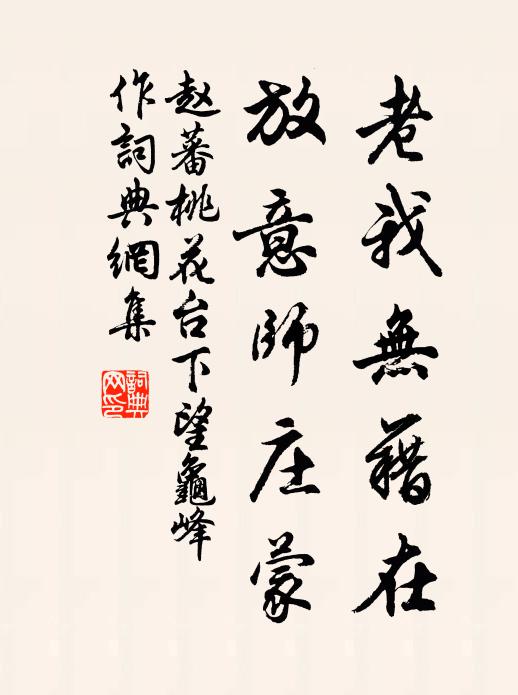 老我無藉在
放意師庄蒙
赵蕃桃花台下望龜峰
作詞典網集
詞典網印